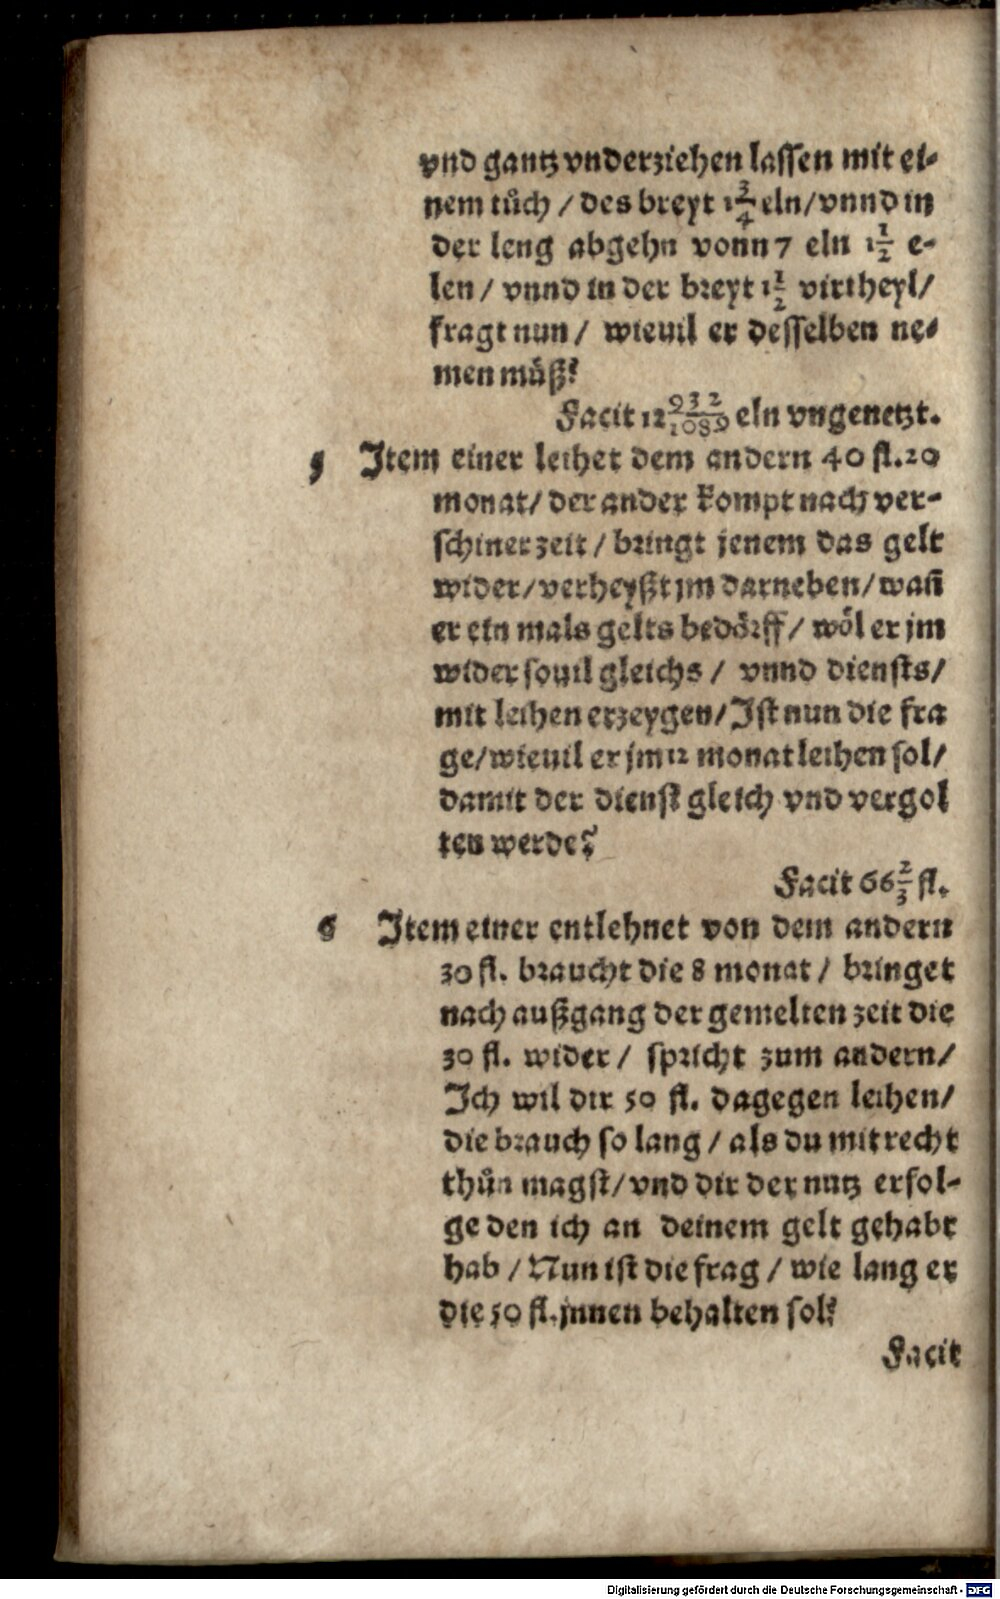 vnd gantz vnderziehen lassen mit ei-
nem tůch / des breyt 1 3/4 eln / vnnd in
der leng abgehn vonn 7 eln 1 1/2 e-
len / vnnd in der breyt 1 1/2 virtheyl /
fragt nun / wieuil er desselben ne-
men můß?
Facit 12 932/1089 eln vngenetzt.
5 Item einer leihet dem andern 40 fl. 20
monat / der ander kompt nach ver-
schiner zeit / bringt jenem das gelt
wider / verheyßt jm darneben / wañ
er ein mals gelts bedörff / wöl er jm
wider souil gleichs / vnnd diensts /
mit leihen erzeygen / Ist nun die fra
ge / wieuil er jm 12 monat leihen sol /
damit der dienst gleich vnd vergol
ten werde?
Facit 66 2/3 fl.
6 Item einer entlehnet von dem andern
30 fl. braucht die 8 monat / bringet
nach außgang der gemelten zeit die
30 fl. wider / spricht zum andern /
Ich wil dir 50 fl. dagegen leihen /
die brauch so lang / als du mit recht
thůn magst / vnd dir der nutz erfol-
ge den ich an deinem gelt gehabt
hab / Nun ist die frag / wie lang er
die 50 fl. jnnen behalten sol?
Facit
Digitalisierung gefördert durch die Deutsche Forschungsgemeinschaft - DFG